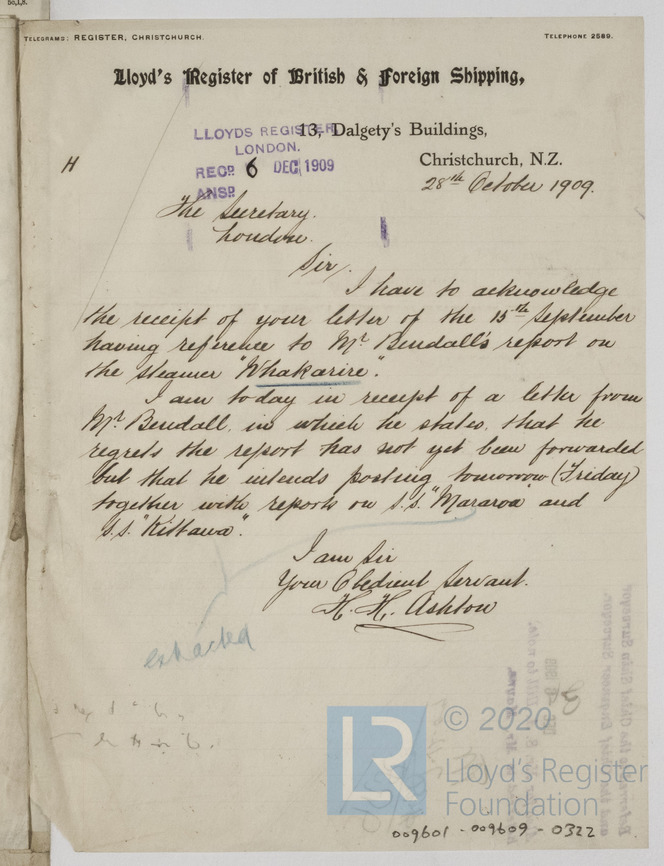 TELEGRAMS: REGISTER, CHRISTCHURCH.
TELEPHONE 2589.
Lloyd's Register of British & Foreign Shipping,
13, Dalgety's Buildings,
Christchurch, N.Z.
LLOYDS REGISTER
LONDON.
RECD 6 DEC 1909
ANSD
H
28th October 1909.
The Secretary.
London.
Sir,
I have to acknowledge
the receipt of your letter of the 15th September
having reference to Mr Bendall's report on
the steamer "Whakarire".
I am today in receipt of a letter from
Mr Bendall, in which he states, that he
regrets the report has not yet been forwarded
but that he intends posting tomorrow (Friday)
together with reports on s.s. "Mararoa" and
s.s. "Kittawa".
I am Sir
Your Obedient Servant.
H. H. Ashton
extracted
LR
© 2020
Lloyd's Register
Foundation
009601-009609-0322